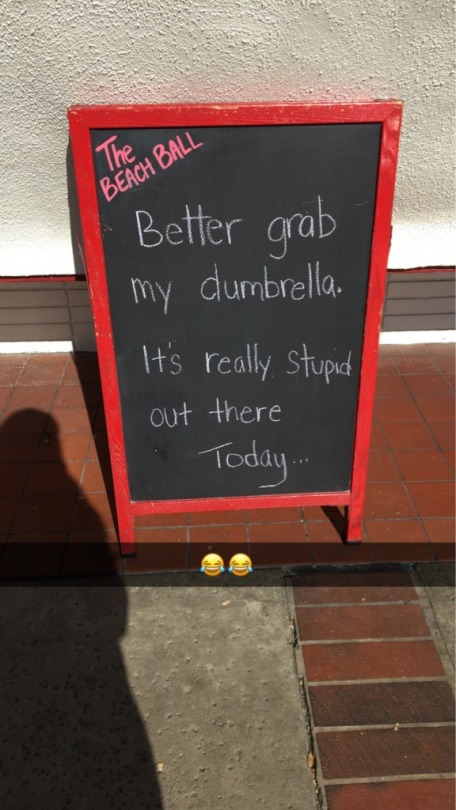 The
BEACH BALL
Better grab
my dumbrella.
It's really stupid
out there
Today...
😂😂